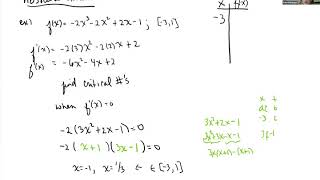 ex) f(x) = -2x³ - 2x² + 2x - 1 ; [-3, 1]
x | f(x)
-3
f'(x) = -2(3)x² - 2(2)x + 2
f'(x) = -6x² - 4x + 2
find critical #'s
when f'(x) = 0
-2(3x² + 2x - 1) = 0
-2(x + 1)(3x - 1) = 0
x = -1, x = 1/3 ← ∈ [-3, 1]
3x² + 2x - 1
3x² + 3x - x - 1
3x(x+1) - (x+1)
x +
-3
3, -1